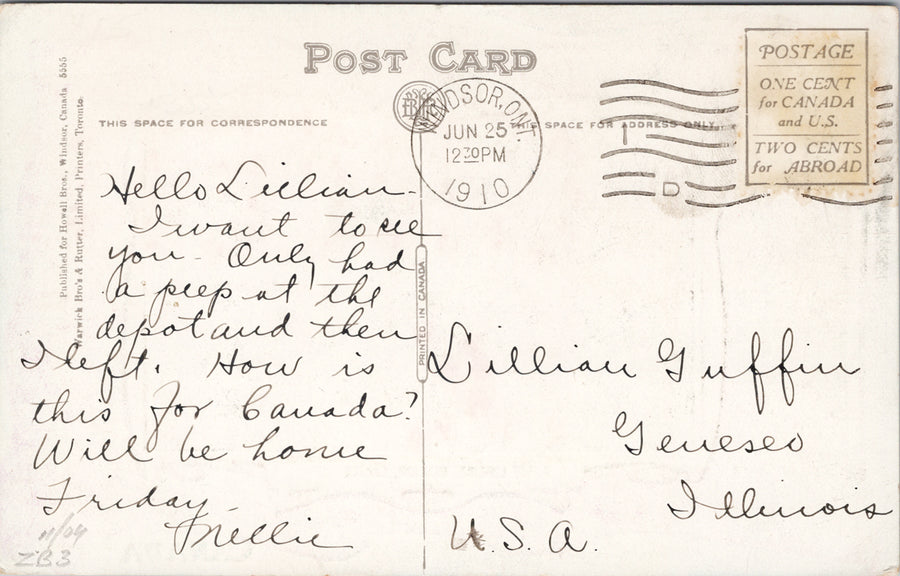 POST CARD
Published for Howell Bros., Windsor, Canada 5555
Warwick Bro's & Rutter, Limited, Printers, Toronto.
THIS SPACE FOR CORRESPONDENCE
THIS SPACE FOR ADDRESS ONLY
WINDSOR, ONT.
JUN 25
12 30 PM
1910
D
POSTAGE
ONE CENT
for CANADA
and U.S.
TWO CENTS
for ABROAD
PRINTED IN CANADA
Hello Lillian -
I want to see
you - Only had
a peep at the
depot and then
I left. How is
this for Canada?
Will be home
Friday
Nellie
11/04
ZB3
Lillian Guffin
Geneseo
Illinois
U.S.A.